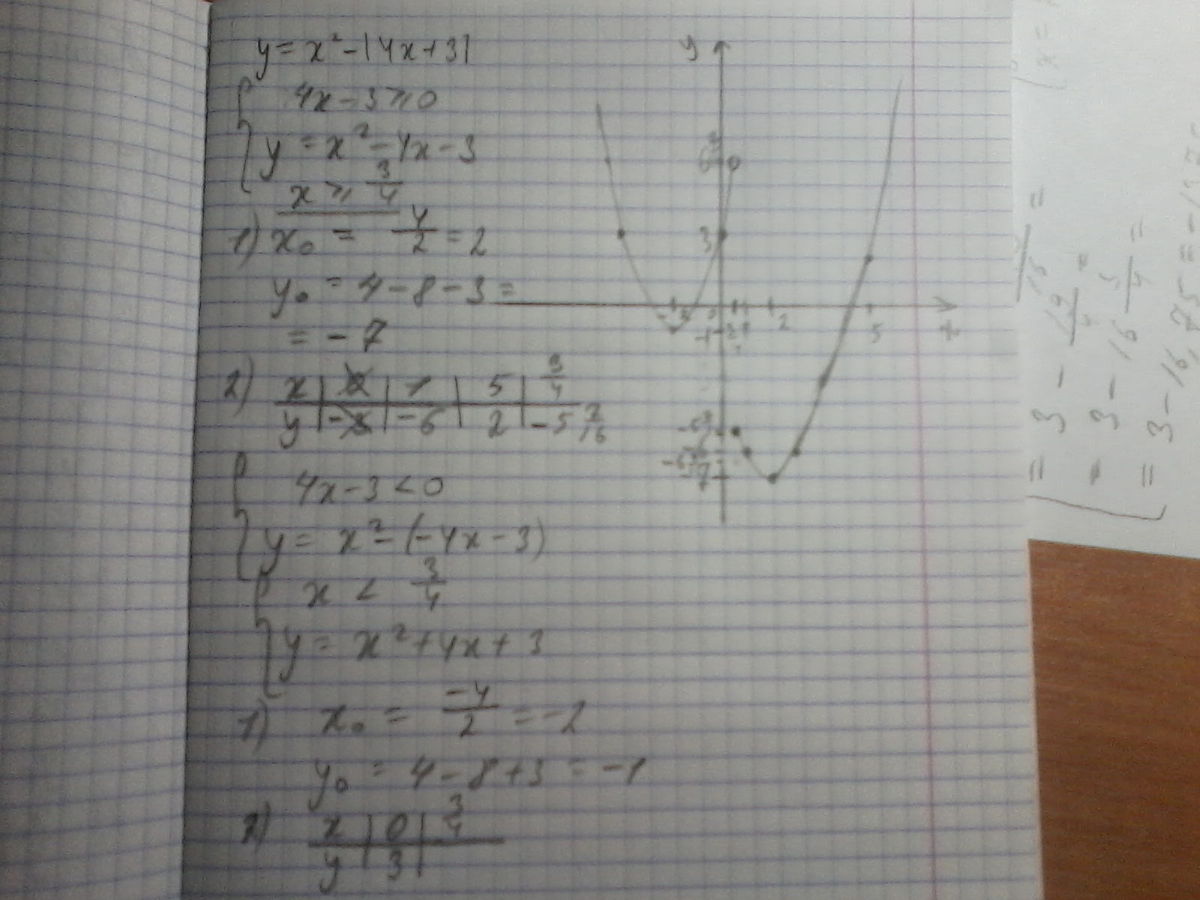 y = x² - |4x + 3|
4x - 3 ≥ 0
y = x² - 4x - 3
x ≥ 3/4
1) x₀ = 4/2 = 2
y₀ = 4 - 8 - 3 =
= -7
2) x | 0 | 1 | 5 | 3/4
y | -3 | -6 | 2 | -5 7/16
4x - 3 < 0
y = x² - (-4x - 3)
x < 3/4
y = x² + 4x + 3
1) x₀ = -4/2 = -2
y₀ = 4 - 8 + 3 = -1
2) x | 0 | 3/4
y | 3 |
y
3
-1
2
5
x
-7
= 3 -
= 3 - 16 3/4 =
= 3 - 16,75 =